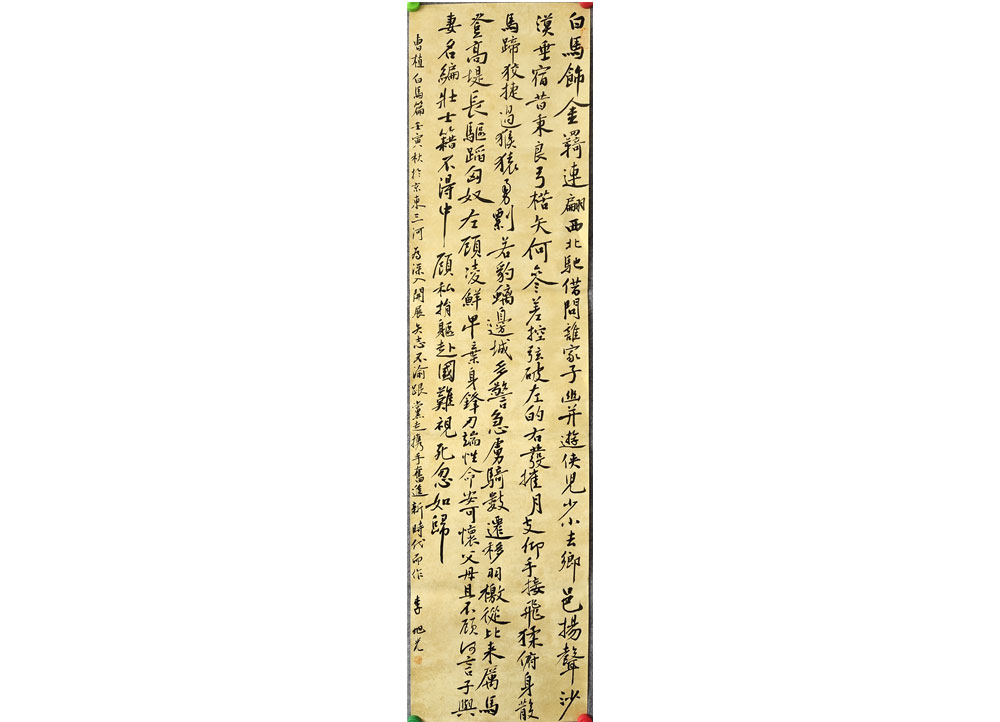 白馬飾金羇連翩西北馳借問誰家子幽并遊俠兒少小去鄉邑揚聲沙
漠垂宿昔秉良弓楛矢何參差控弦破左的右發摧月支仰手接飛猱俯身散
馬蹄狡捷過猴猿勇剽若豹螭邊城多警急虜騎數遷移羽檄從北来厲馬
登高堤長驅蹈匈奴左顧凌鮮卑棄身鋒刃端性命安可懷父母且不顧何言子與
妻名編壯士籍不得中顧私捐軀赴國難視死忽如歸
曹植白馬篇壬寅秋於京東三河為深入開展矢志不渝跟黨走携手奮進新時代而作 李旭光